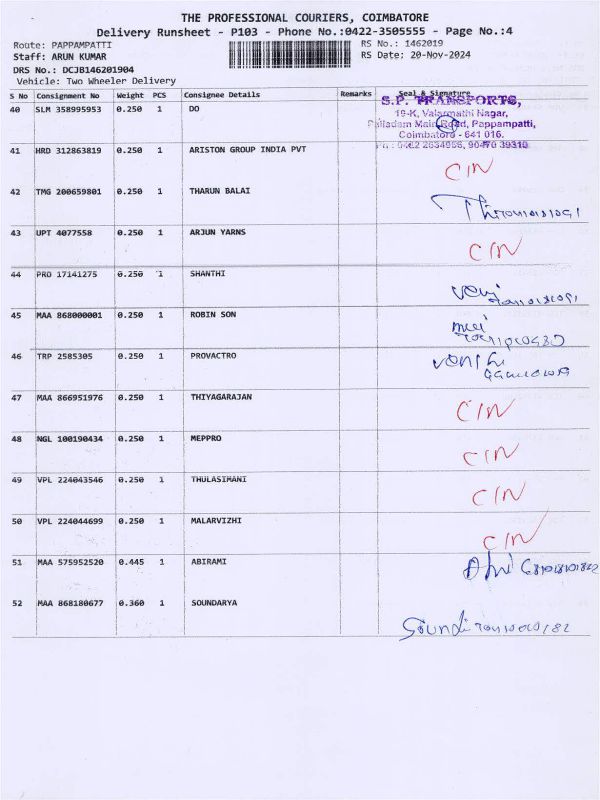 THE PROFESSIONAL COURIERS, COIMBATORE
Delivery Runsheet - P103 - Phone No.:0422-3505555 - Page No.:4
Route: PAPPAMPATTI RS No.: 1462019
Staff: ARUN KUMAR RS Date: 20-Nov-2024
DRS No.: DCJB146201904
Vehicle: Two Wheeler Delivery
S No Consignment No Weight PCS Consignee Details Remarks Seal & Signature
S.P. TRANSPORTS,
40 SLM 358995953 0.250 1 DO
19-K, Valarmathi Nagar,
Palladam Main Road, Pappampatti,
Coimbatore - 641 016.
Ph : 0422 2634966, 90470 39310
41 HRD 312863819 0.250 1 ARISTON GROUP INDIA PVT CIN
42 TMG 200659801 0.250 1 THARUN BALAI
43 UPT 4077558 0.250 1 ARJUN YARNS CIN
44 PRO 17141275 0.250 1 SHANTHI
45 MAA 868000001 0.250 1 ROBIN SON
46 TRP 2585305 0.250 1 PROVACTRO
47 MAA 866951976 0.250 1 THIYAGARAJAN CIN
48 NGL 100190434 0.250 1 MEPPRO CIN
49 VPL 224043546 0.250 1 THULASIMANI CIN
50 VPL 224044699 0.250 1 MALARVIZHI CIN
51 MAA 575952520 0.445 1 ABIRAMI
52 MAA 868180677 0.360 1 SOUNDARYA